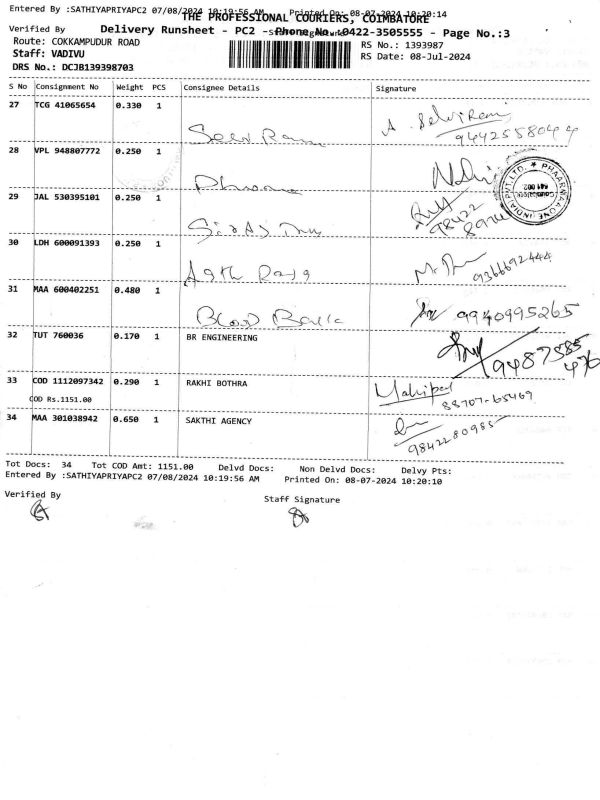 Entered By :SATHIYAPRIYAPC2 07/08/2024 10:19:56 AM Printed On: 08-07-2024 10:20:14
THE PROFESSIONAL COURIERS, COIMBATORE
Verified By Staff Signature
Delivery Runsheet - PC2 - Phone No.:0422-3505555 - Page No.:3
Route: COKKAMPUDUR ROAD RS No.: 1393987
Staff: VADIVU RS Date: 08-Jul-2024
DRS No.: DCJB139398703
S No Consignment No Weight PCS Consignee Details Signature
27 TCG 41065654 0.330 1
A. Selvi Rani
9442558044
28 VPL 948807772 0.250 1
PHAARMA ONE (INDIA) PVT. LTD.
Coimbatore
641 002
29 JAL 530395101 0.250 1
98422
30 LDH 600091393 0.250 1
9366692444
31 MAA 600402251 0.480 1
Blood Bank
9940995265
32 TUT 760036 0.170 1 BR ENGINEERING
9487585
476
33 COD 1112097342 0.290 1 RAKHI BOTHRA
COD Rs.1151.00
Mahipal
88707-65469
34 MAA 301038942 0.650 1 SAKTHI AGENCY
9842280985
Tot Docs: 34 Tot COD Amt: 1151.00 Delvd Docs: Non Delvd Docs: Delvy Pts:
Entered By :SATHIYAPRIYAPC2 07/08/2024 10:19:56 AM Printed On: 08-07-2024 10:20:10
Verified By Staff Signature